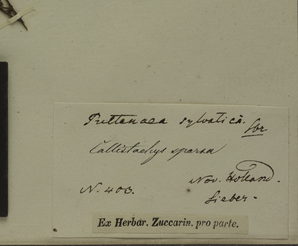 Pultenaea sylvatica. Sbr
Callistachys sparsa
N. 403. Nov. Holland.
Sieber.
Ex Herbar. Zuccarin. pro parte.